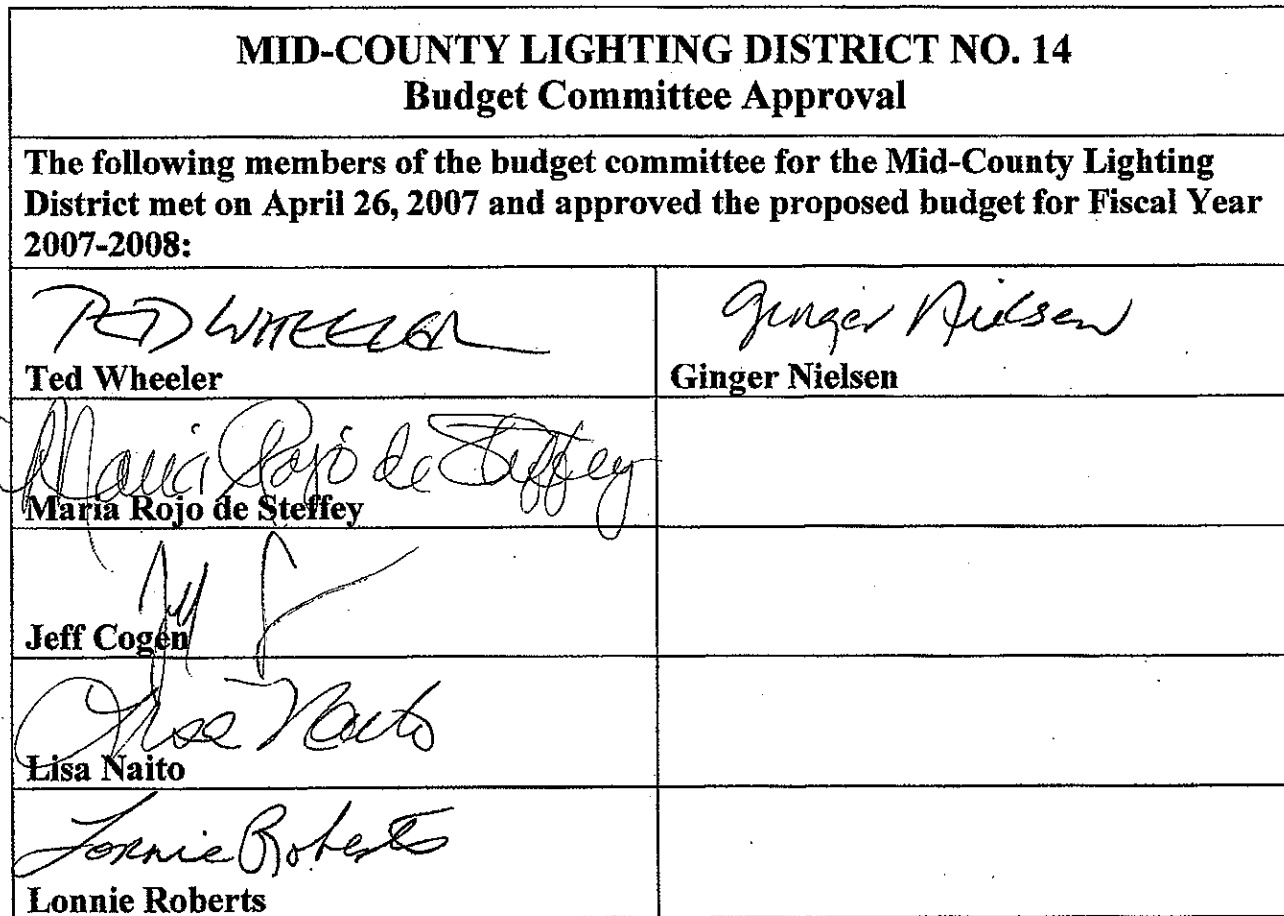 MID-COUNTY LIGHTING DISTRICT NO. 14
Budget Committee Approval
The following members of the budget committee for the Mid-County Lighting
District met on April 26, 2007 and approved the proposed budget for Fiscal Year
2007-2008:
TED WHEELER
Ted Wheeler
Ginger Nielsen
Ginger Nielsen
Maria Rojo de Steffey
Maria Rojo de Steffey
Jeff
Jeff Cogen
Lisa Naito
Lisa Naito
Lonnie Roberts
Lonnie Roberts